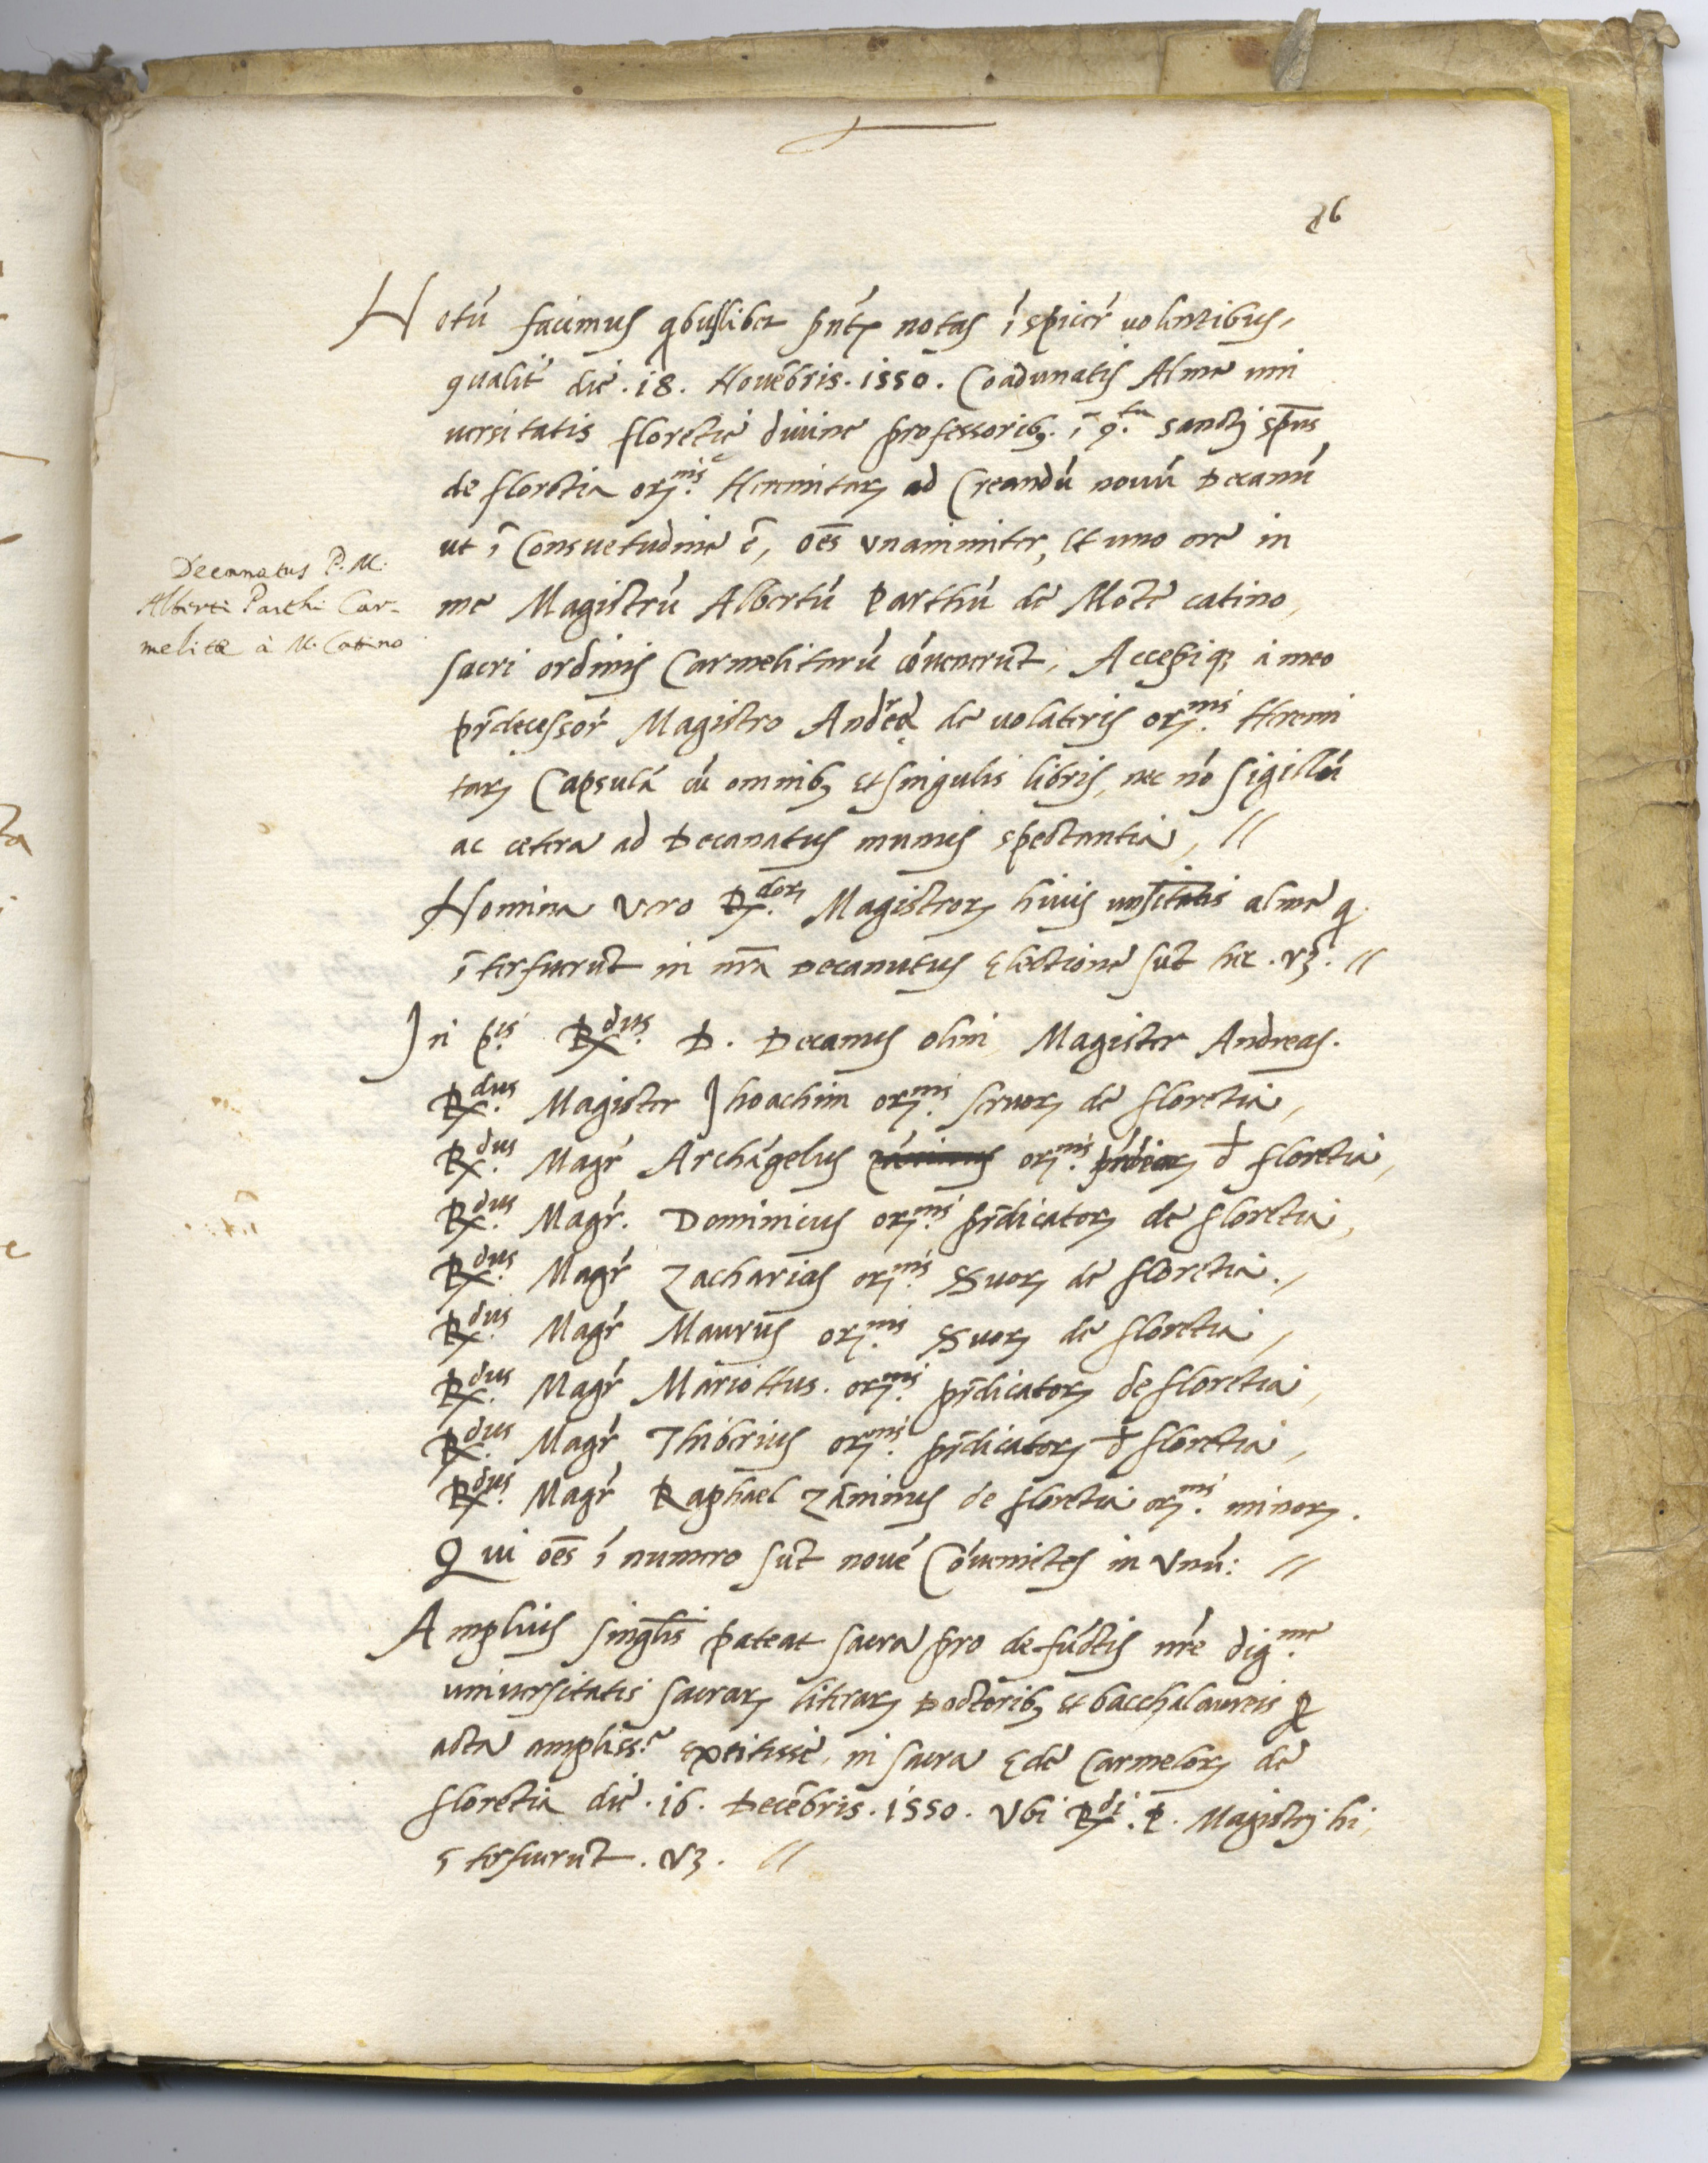 26
Notū facimus qbusliber pñtes notas īspicer̄ uolentibus,
qualit̄ die .18. Nouēbris .1550. Coadunatis Alme uni
uersitatis florētie diuine professorib; ī 9.tu sancti sp̄us
de florētia orj.nis Heremitarꝝ ad Creandū nouū Decanū
ut ī Consuetudine ē, oēs vnanimiter, et uno ore in
Decannatus P. M.
Alberti Parthi Car-
melitæ à M. Catino
me Magistrū Albertū Parthū de Mōte catino,
sacri ordinis Carmelitarū cōuenerūt, Accepiq; a meo
pr̄decessor̄ Magistro Andreę de uolateris orj.nis Heremi
tarꝝ Capsulā cū omnib; et singulis libris, nec nō sigillū
ac cetera ad Decanatus munus spectantia, //
Nomina vero R.dorꝝ Magistrorꝝ huius uniῡsitatis alme q
īterfuerūt in nr̄a Decanatus Electione sūt hec .vꝫ. //
In p.is R.dus D. Decanus olim Magister Andreas.
R.dus Magister Jhoachim orj.nis seruorꝝ de florētia,
R.dus Magr̄ Archāgelus zāminus orj.nis pr̄dicatorꝝ d̄ florētia,
R.dus Magr̄. Dominicus orj.nis pr̄dicatorꝝ de florētia,
R.dus Magr̄ Zacharias orj.nis Suorꝝ de florētia.,
R.dus Magr̄ Maurus orj.nis Suorꝝ de florētia,
R.dus Magr̄ Mariottus. orj.nis pr̄dicatorꝝ de florētia,
R.dus Magr̄ Thiberius orj.nis pr̄dicatorꝝ d̄ florētia,
R.dus Magr̄ Raphael zāminus de florētia orj.nis minorꝝ.
Qui oēs ī numero sūt nouē Cōueniētes in vnū: //
Amplius singlis̄ pateat sacra pro defūctis nr̄e dig.me
uniuersitatis sacrarꝝ literarꝝ Doctorib; et bacchalaureis ꝑ
acta ampliss.e extitisse, in sacra Ede Carmelorꝝ de
florētia die .16. Decēbris .1550. Vbi R.di .P. Magistrj hi,
īterfuerūt .vꝫ. //